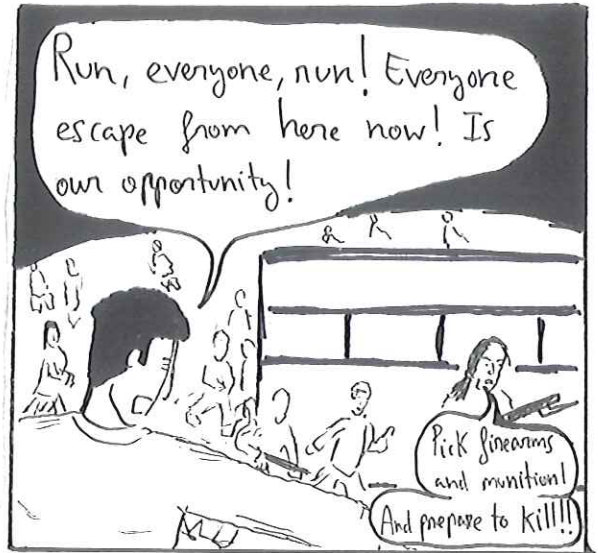 Run, everyone, run! Everyone
escape from here now! Is
our opportunity!
Pick firearms
and munition!
And prepare to kill!!!